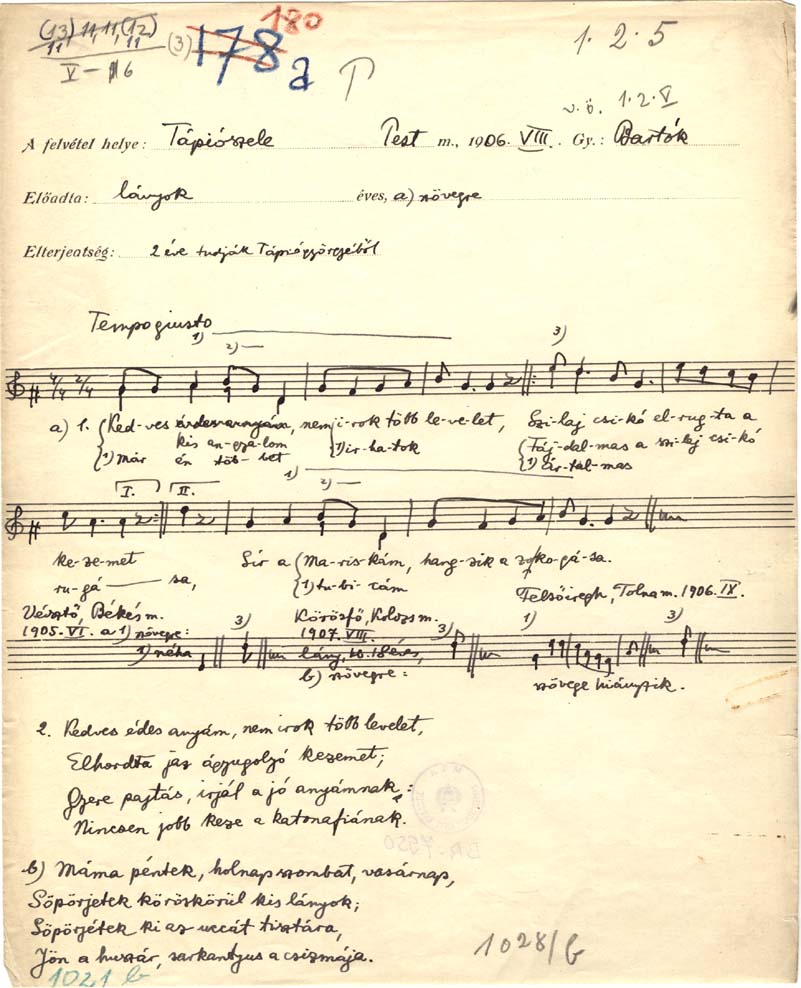 (13) 11, 11, (12)
11 11
V – 6
(3)
178
180
a
T
1. 2. 5
v. ö. 1. 2. V
A felvétel helye: Tápiószele Pest m., 1906. VIII. Gy.: Bartók
Előadta: lányok éves, a) szövegre
Elterjeatség: 2 éve tudják Tápiógyörgyéből
Tempo giusto
1) 2) 3)
4/4 2/4
a) 1. Ked-ves édes anyám, nem i-rok több le-ve-let, Szi-laj csi-kó el-rug-ta a
kis an-gya-lom Fáj-dal-mas a szi-laj csi-kó
1) Már én töb-bet 1) ir-ha-tok 1) Ár-tal-mas
1) 2)
I. II.
ke-ze-met Sír a Ma-ris-kám, hang-zik a zo-ko-gá-sa.
ru-gá — sa, 1) tu-bi-cám
Felsőiregh, Tolna m. 1906. IX.
Vésztő, Békés m. Körösfő, Kolozs m.
1905. VI. a 1) szövegre: 3) 1907. VIII. 3) 1) 3)
1) néha lány, 18 éves,
b) szövegre: szövege hiányzik.
2. Kedves édes anyám, nem irok több levelet,
Elhordta jaz ágyugolyó kezemet;
Gyere pajtás, irjál a jó anyámnak:
Nincsen jobb keze a katonafiának.
b) Máma péntek, holnap szombat, vasárnap,
Söpörjetek köröskörül kis lányok;
Söpörjétek ki az uccát tisztára,
Jön a huszár, sarkantyus a csizmája.
1021 b
1028/b